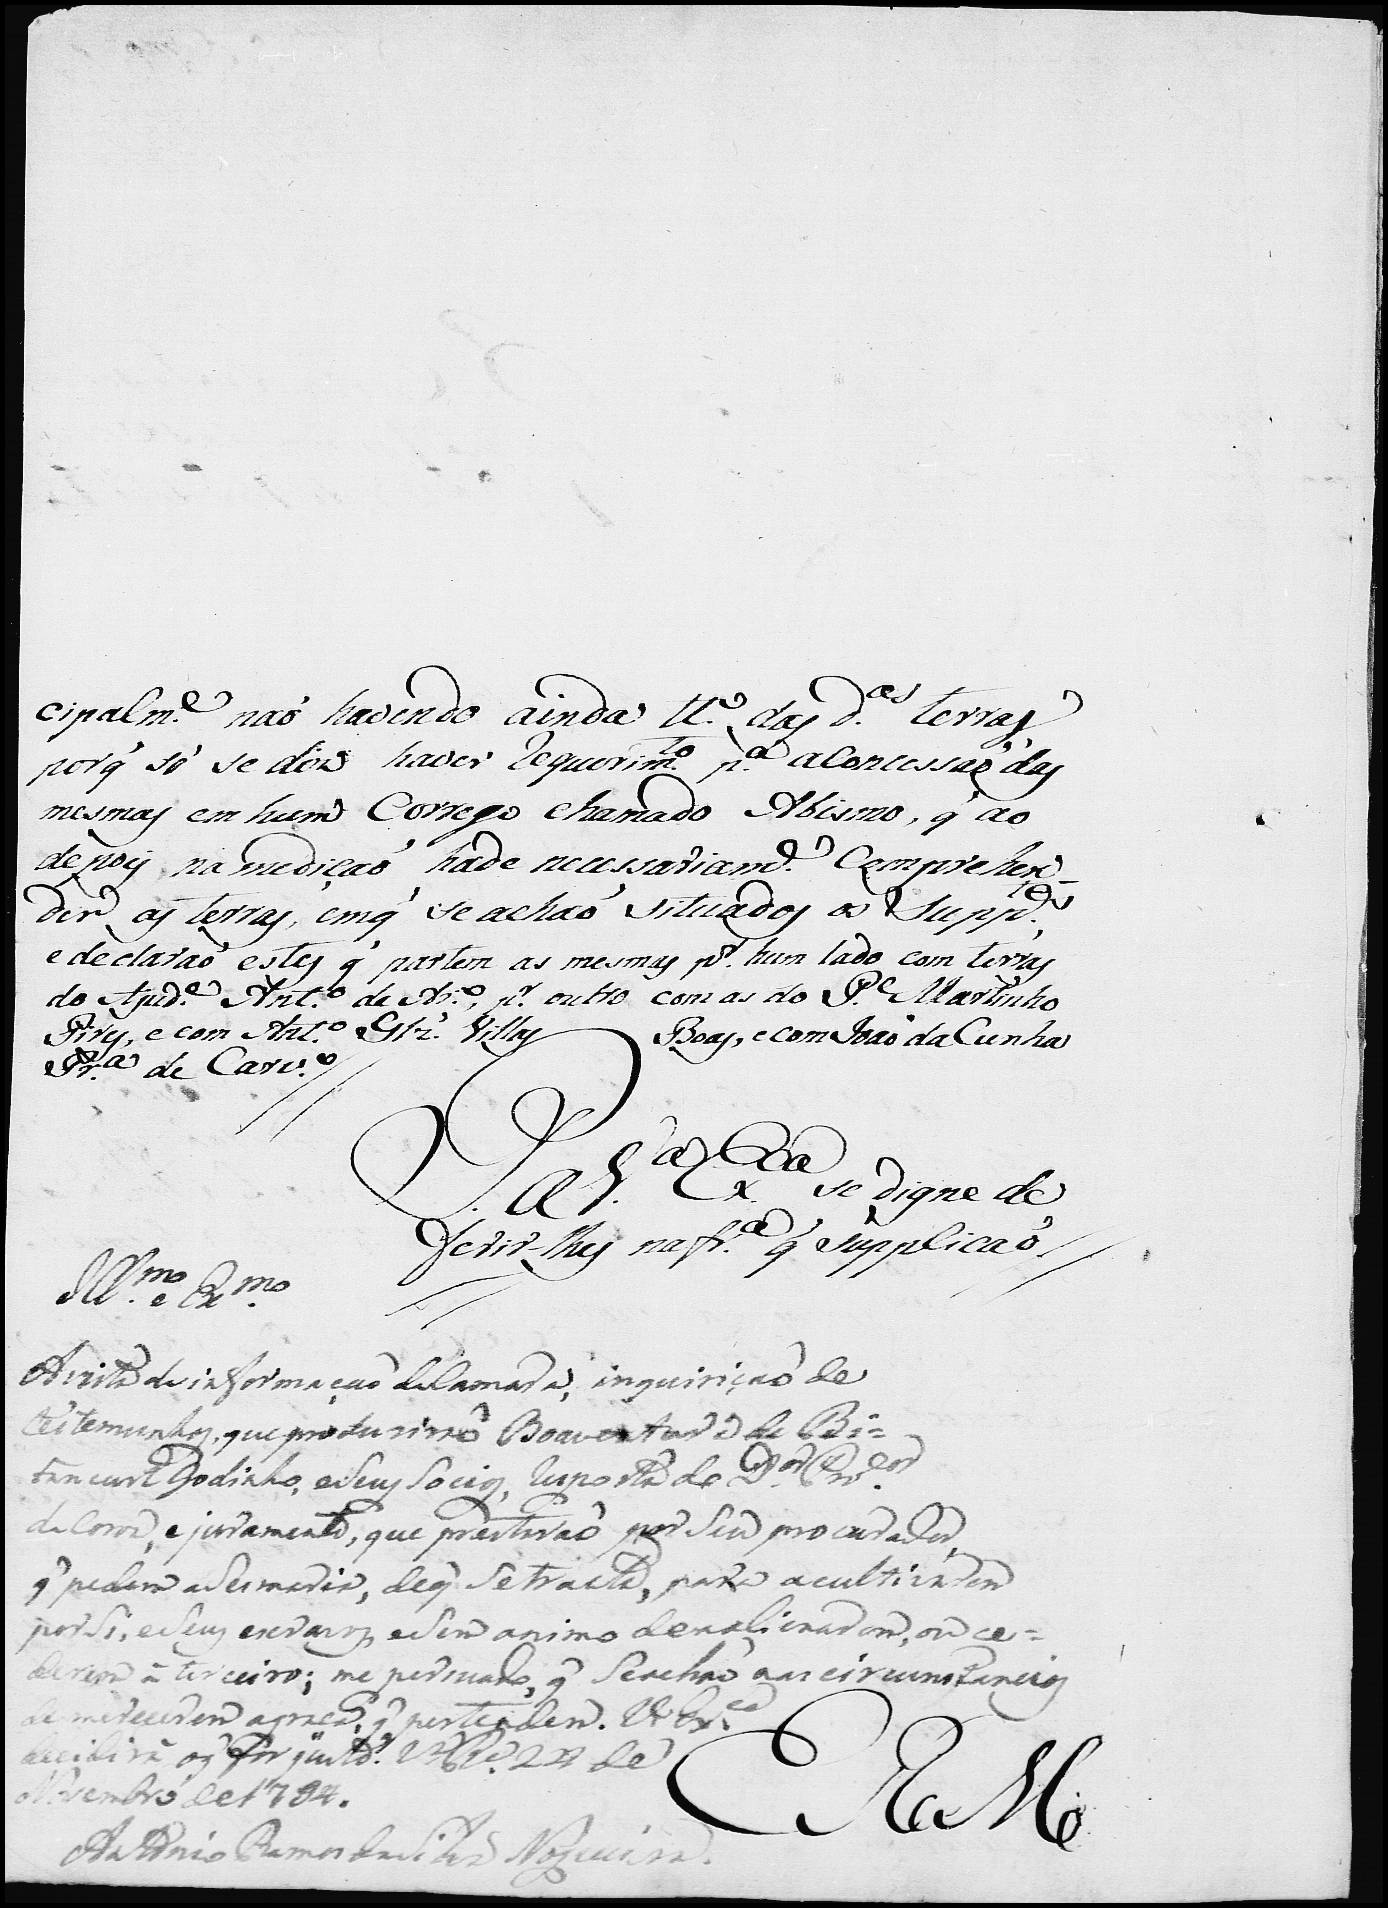 cipalm.e naõ havendo ainda tt.o das d.as terras
porq̃ só se dis haver requerim.to p.a a Concessaõ das
mesmas em hum Corrego chamado Abismo, q̃ ao
depois na mediçaõ hade necessariam.e Comprehen-
der as terras, emq̃ se achaõ situados os Supp.es,
e declaraõ estes q̃ partem as mesmas p.r hum lado com terras
do Ajud.e Ant.o de Ar.o, p.r outro com as do P.e Martinho
Pires, e com Ant.o Glz.' Villas Boas, e com Joaõ da Cunha
Pr.a de Carv.o //
P. a V.a Ex.cia se digne de
ferir-lhes na fr.a q̃ Supplicaõ //
Ill.mo e Ex.mo
Avista da informaçaõ da Camara, inquiriçaõ de
testemunhas, que produziraõ Boaventura de Bi=
tancurt Godinho, e Seus Socios, resposta do D.or Pr.or
da Coroa, e juramento, que prestaraõ por Seu procurador,
q̃ pedem a Sesmaria, deq̃ Setracta, para acultivarem
por Si, e Seus escravos, e Sem animo de aalienarem, ou ce=
derem á terceiro; me persuado, q̃ Seachaõ nas circunstancias
de merecerem agraça, q̃ pertendem. V. Ex.ca
decidirá oq̃ for justo. 24 de
Novembro de 1794.
Antonio Ramos da Silva Nogueira.
E R M.ce